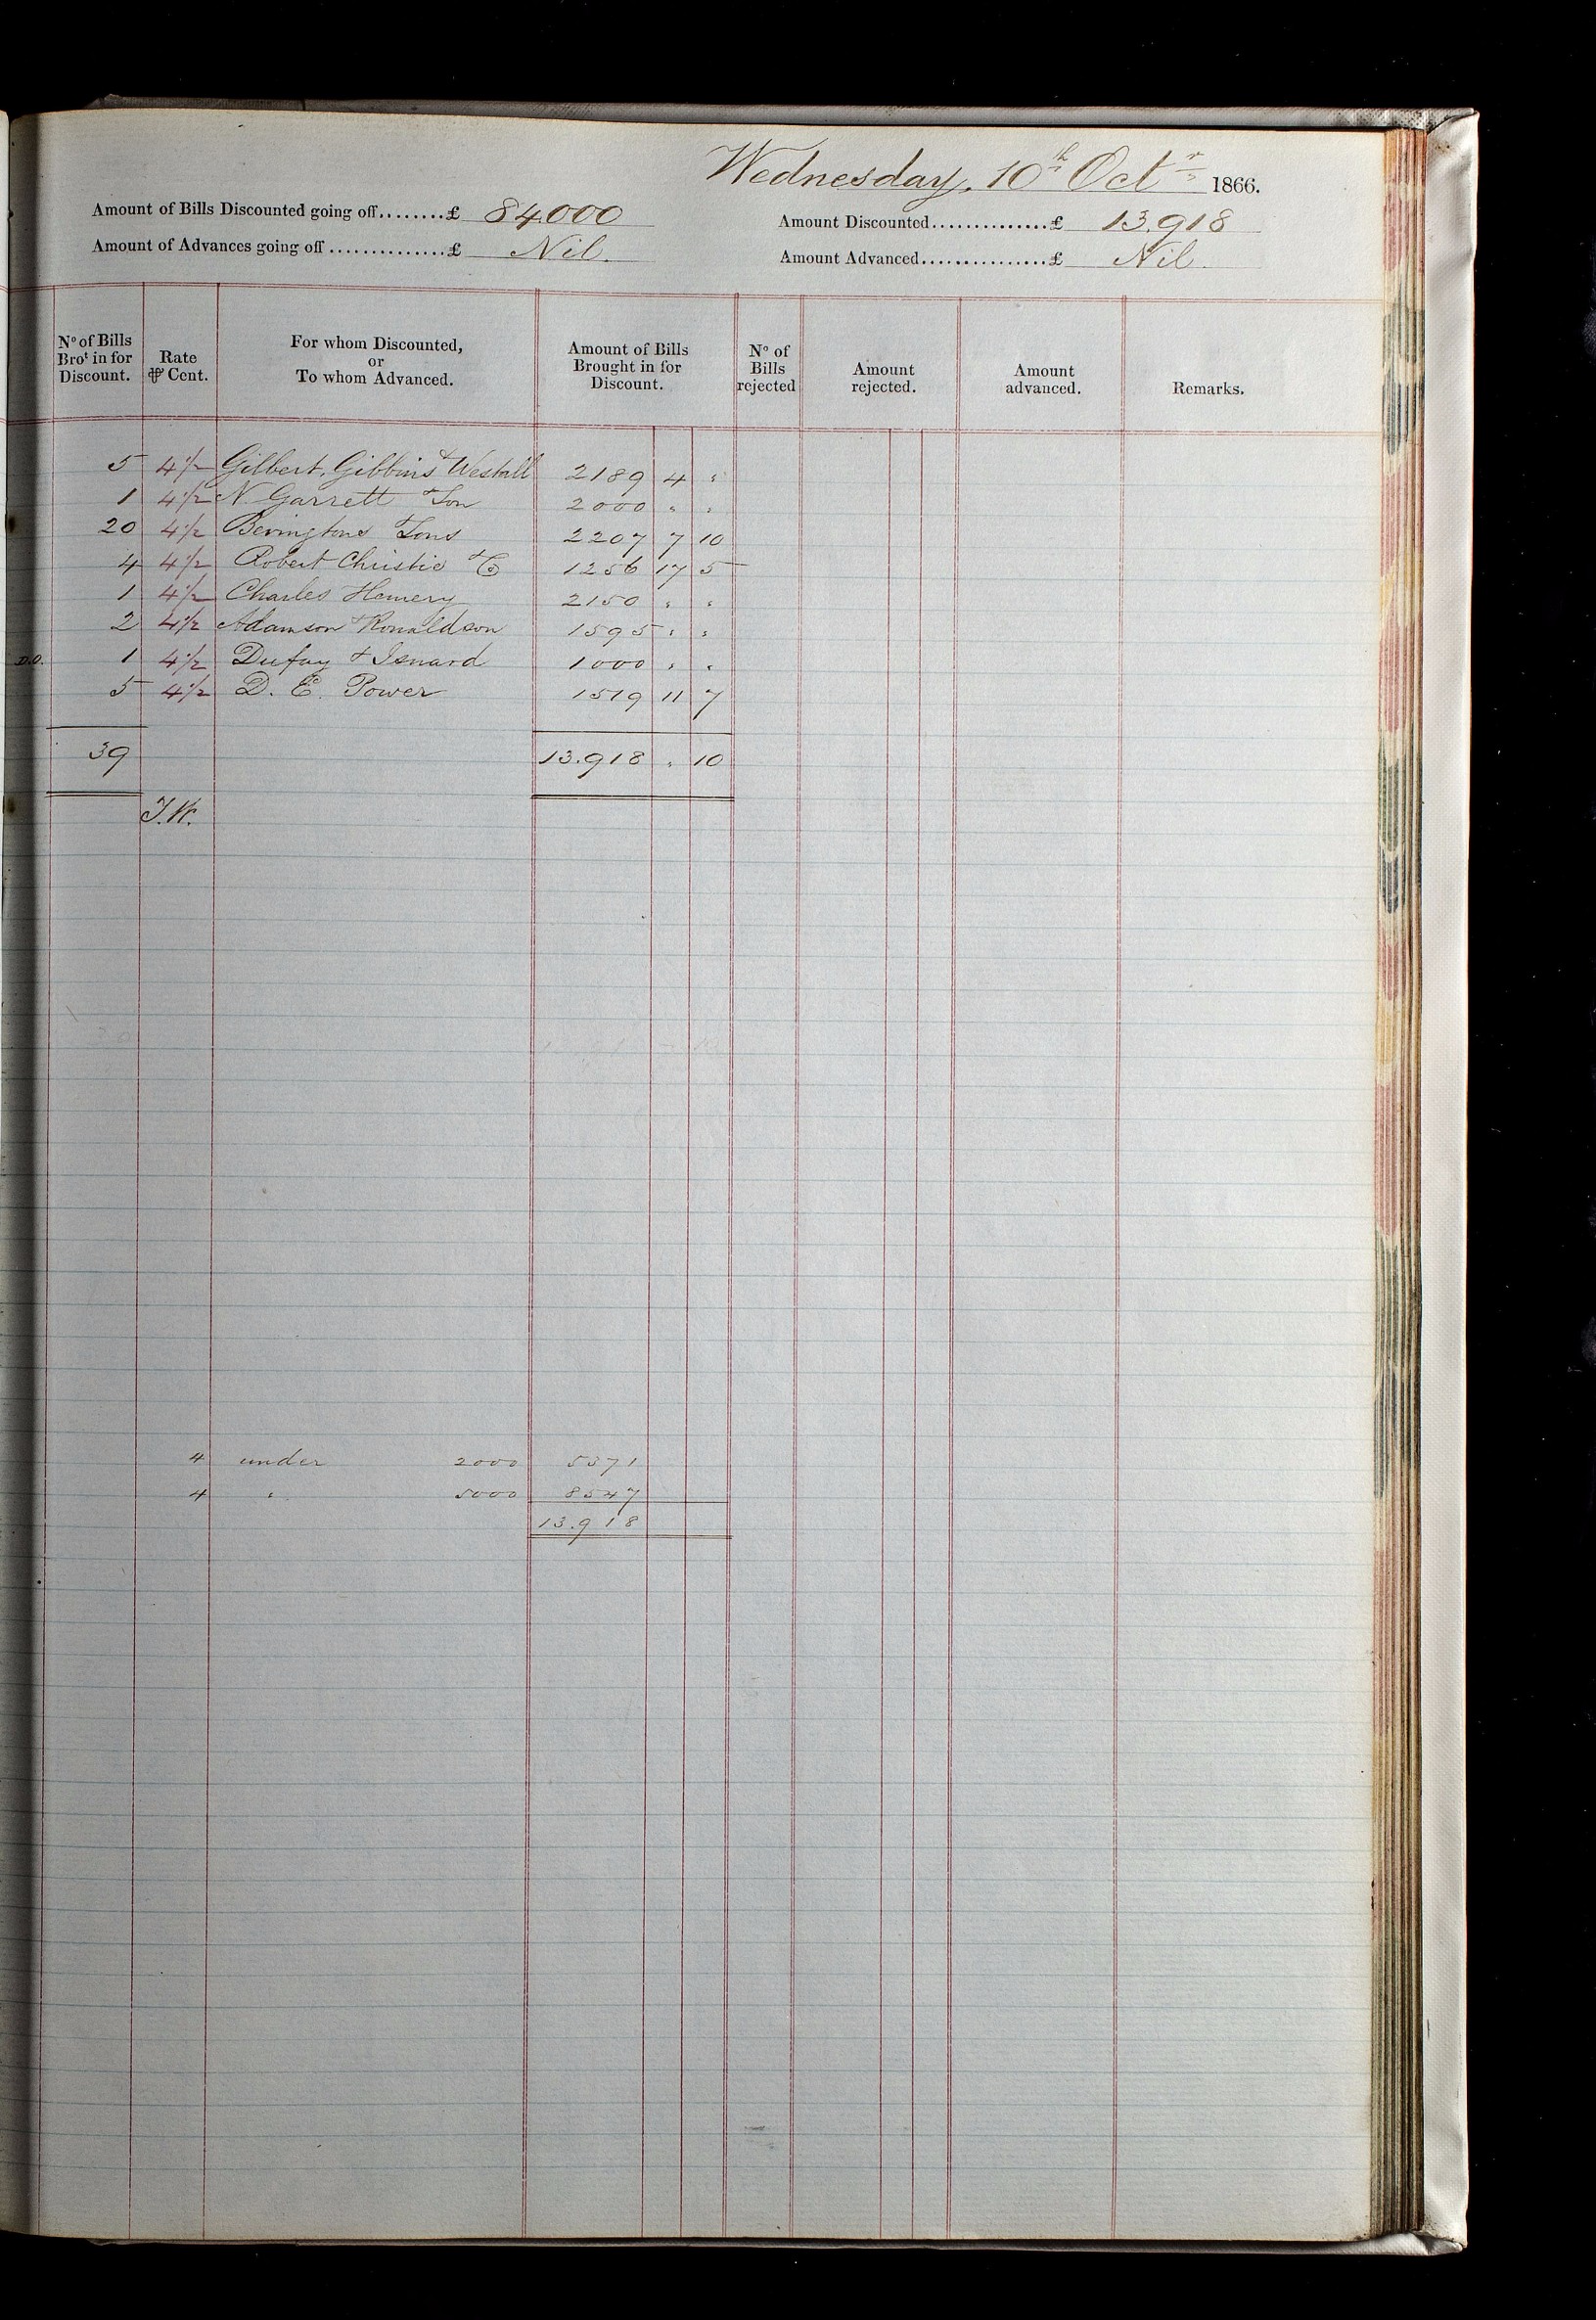 Wednesday, 10th Octr 1866.
Amount of Bills Discounted going off........£ 84,000
Amount Discounted...............£ 13,918
Amount of Advances going off...............£ Nil.
Amount Advanced................£ Nil.
No of Bills Brot in for Discount. Rate ⅌ Cent. For whom Discounted, or To whom Advanced. Amount of Bills Brought in for Discount. No of Bills rejected Amount rejected. Amount advanced. Remarks.
5 4½ Gilbert, Gibbins & Westall 2189 4 "
1 4½ N. Garrett & Son 2000 " "
20 4½ Bevingtons & Sons 2207 7 10
4 4½ Robert Christie & Co 1256 17 5
1 4½ Charles Hemery 2150 " "
2 4½ Adamson & Ronaldson 1595 " "
D.O. 1 4½ Dufay & Isnard 1000 " "
5 4½ D. E. Power 1519 11 7
39 13.918 " 10
4 under 2000 5371
4 " 5000 8547
13.918